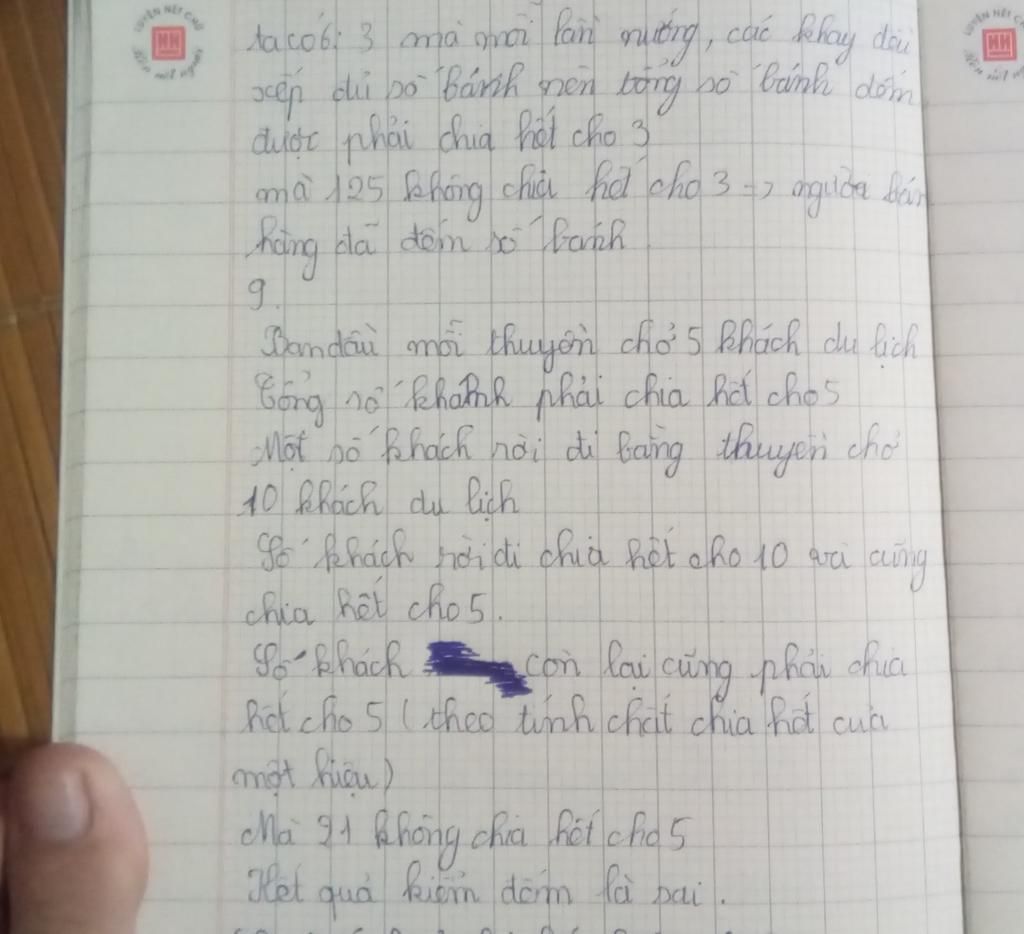 LUYỆN NÉT CHỮ
Rèn nết người
LUYỆN NÉT CHỮ
ta có 6 ⋮ 3 mà mỗi lần nướng, các khay đều
xếp đủ số bánh nên tổng số bánh đếm
được phải chia hết cho 3
mà 125 không chia hết cho 3 => người bán
hàng đã đếm số bánh
9.
Ban đầu mỗi thuyền chở 5 khách du lịch
Tổng số khách phải chia hết cho 5
Một số khách rời đi bằng thuyền chở
10 khách du lịch
Số khách rời đi chia hết cho 10 và cũng
chia hết cho 5.
Số khách còn lại cũng phải chia
hết cho 5 (theo tính chất chia hết của
một hiệu)
Mà 91 không chia hết cho 5
Kết quả kiểm đếm là sai.